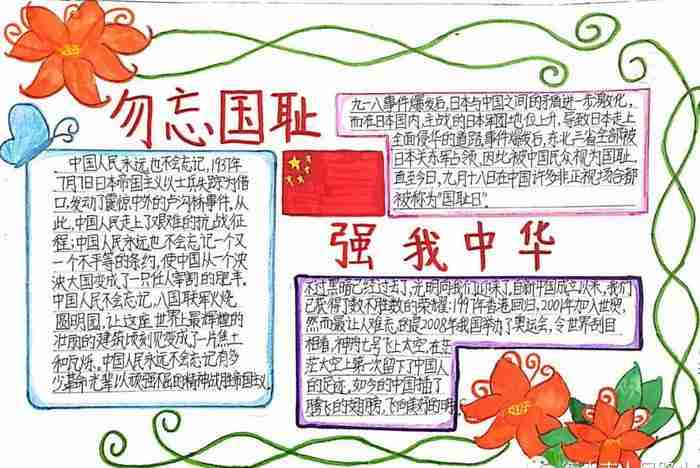 勿忘国耻
中国人民永远也不会忘记，1937年
7月7日日本帝国主义以士兵失踪为借
口，发动了震惊中外的卢沟桥事件。从
此，中国人民走上了艰难的抗战征
程；中国人民永远也不会忘记一个又
一个不平等的条约，使中国从一个泱
泱大国变成了一只任人宰割的羔羊。
中国人民不会忘记，八国联军火烧
圆明园，让这座世界上最辉煌的
壮丽的建筑顷刻见变成了一片焦土
和瓦砾。中国人民永远不会忘记有多
少革命先辈以顽强不屈的精神战胜帝国主义
九一八事件爆发后，日本与中国之间的矛盾进一步激化，
而在日本国内，主战的日本军团地位上升，导致日本走上
全面侵华的道路，事件爆发后，东北三省全部被
日本关东军占领，因此被中国民众视为国耻，
直至今日，九月十八日在中国许多非正视场合都
被称为“国耻日”。
强我中华
不过黑暗已经过去了，光明向我们迎来了，自新中国成立以来，我们
已获得了数不胜数的荣耀：1997年香港回归，2001年加入世贸，
然而最让人难忘的是2008年我国举办了奥运会，令世界刮目
相看，神舟七号飞上太空，在茫
茫太空上第一次留下了中国人
的足迹，如今的中国插了
腾飞的翅膀，飞向美好的明